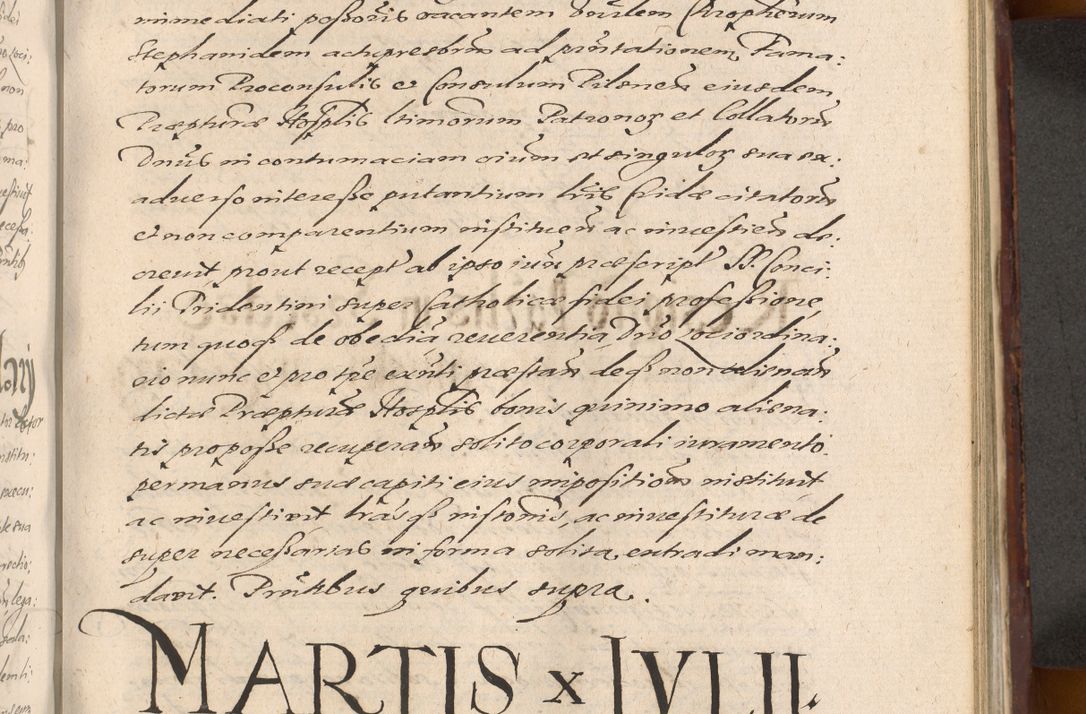 immediati possoris vacantem Dnũlem Christopherum
Stephanidem achipresbrm ad pñtationem Fama:
torum Proconsulis et Consulum Pilsnen eiusdem
Præpturæ Hosplis ltimorum Patronoꝝ et Collatorũ
Dnũs in contumaciam oium et singuloꝝ sua ex:
adverso interesse putantium lrĩs Cridæ citatorũ
et non comparentium instituen ac investien de:
crevit, prout recept ab ipso iuxta præscript SS. Conci:
lii Tridentini super Catholicæ fidei professione,
tum quoqꝫ de obedia reverentia Dño loci ordina:
rio nunc et pro tpe exñti præstan deqꝫ non alienan
dictæ Præpturæ Hosplis bonis quinimo aliena:
tis proposse recuperan solito corporali iuramento
per manus suæ capiti eius impositionem instituit
ac investivit lras qꝫ instonis, ac investituræ de
super necessarias in forma solita, extradi man:
davit. Pñtibus quibus supra.
MARTIS x IVLII.